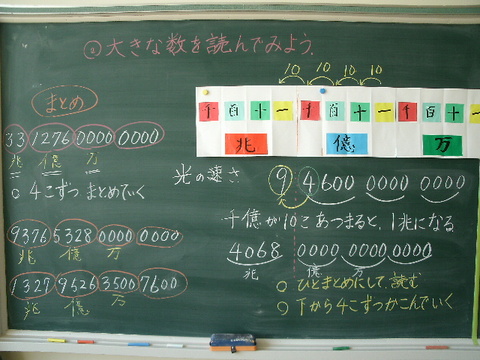 ② 大きな数を読んでみよう.
10 10 10 10
千 百 十 一 千 百 十 一 千 百 十
兆 億 万
まとめ
33 1276 0000 0000
兆 億 万
○ 4こずつ まとめていく
9376 5328 0000 0000
兆 億 万
1327 9426 3500 7600
兆 億 万
光の速さ
9 4600 0000 0000
千億が10こあつまると、1兆になる
4068 0000 0000 0000
兆 億 万
○ ひとまとめにして、読む
○ 下から4こずつかこんでいく